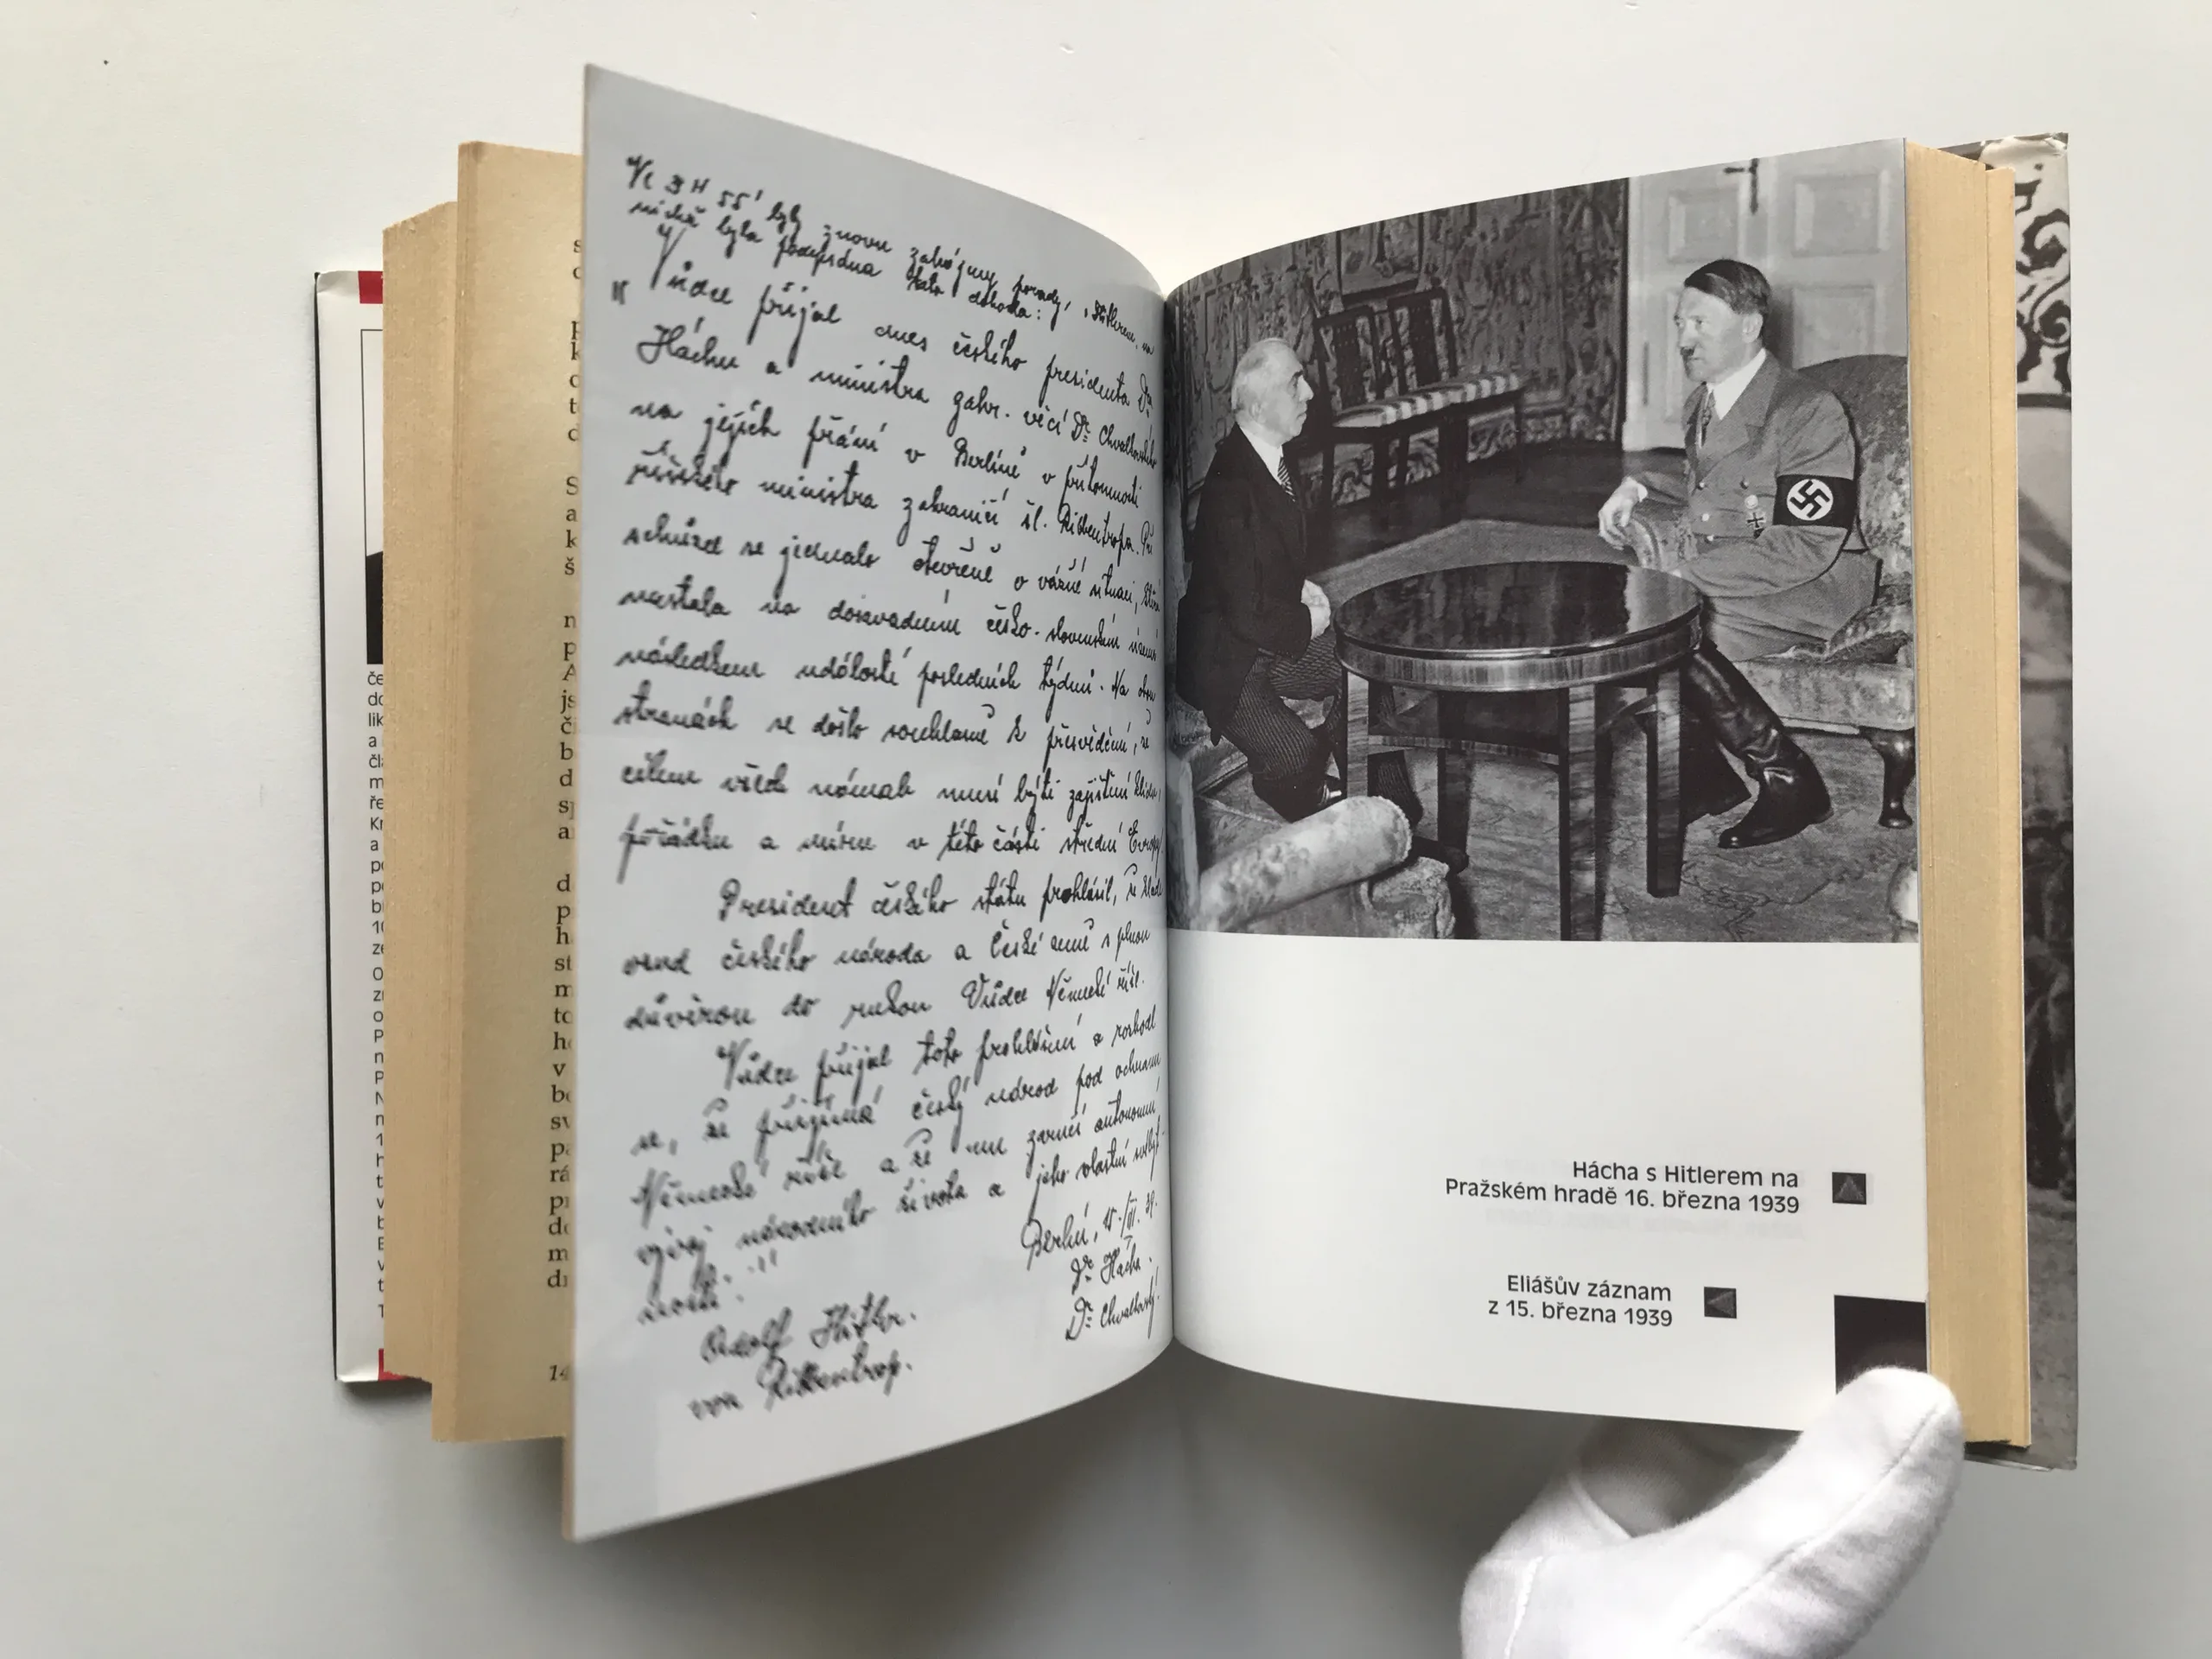 Ve 3 H 55' byly znovu zahájeny porady s Hitlerem, na
nichž byla podepsána tato dohoda:
" Vůdce přijal dnes českého presidenta Dr.
Háchu a ministra zahr. věcí Dr. Chvalkovského
na jejich přání v Berlíně v přítomnosti
říšského ministra zahraničí šl. Ribbentropa. Při
schůzce se jednalo otevřeně o vážné situaci, která
nastala na dosavadním česko-slovenském území
následkem událostí posledních týdnů. Na obou
stranách se došlo souhlasně k přesvědčení, že
cílem všech námah musí býti zajištění klidu,
pořádku a míru v této části střední Evropy.
President českého státu prohlásil, že klade
osud českého národa a České země s plnou
důvěrou do rukou Vůdce Německé říše.
Vůdce přijal toto prohlášení a rozhodl
se, že přijímá český národ pod ochranu
Německé říše a že mu zaručí autonomní
vývoj národního života a jeho vlastní svébyt-
nosti."
Berlín, 15./III. 39.
Dr. Hácha.
Dr. Chvalkovský.
Adolf Hitler.
von Ribbentrop.
Hácha s Hitlerem na
Pražském hradě 16. března 1939
Eliášův záznam
z 15. března 1939